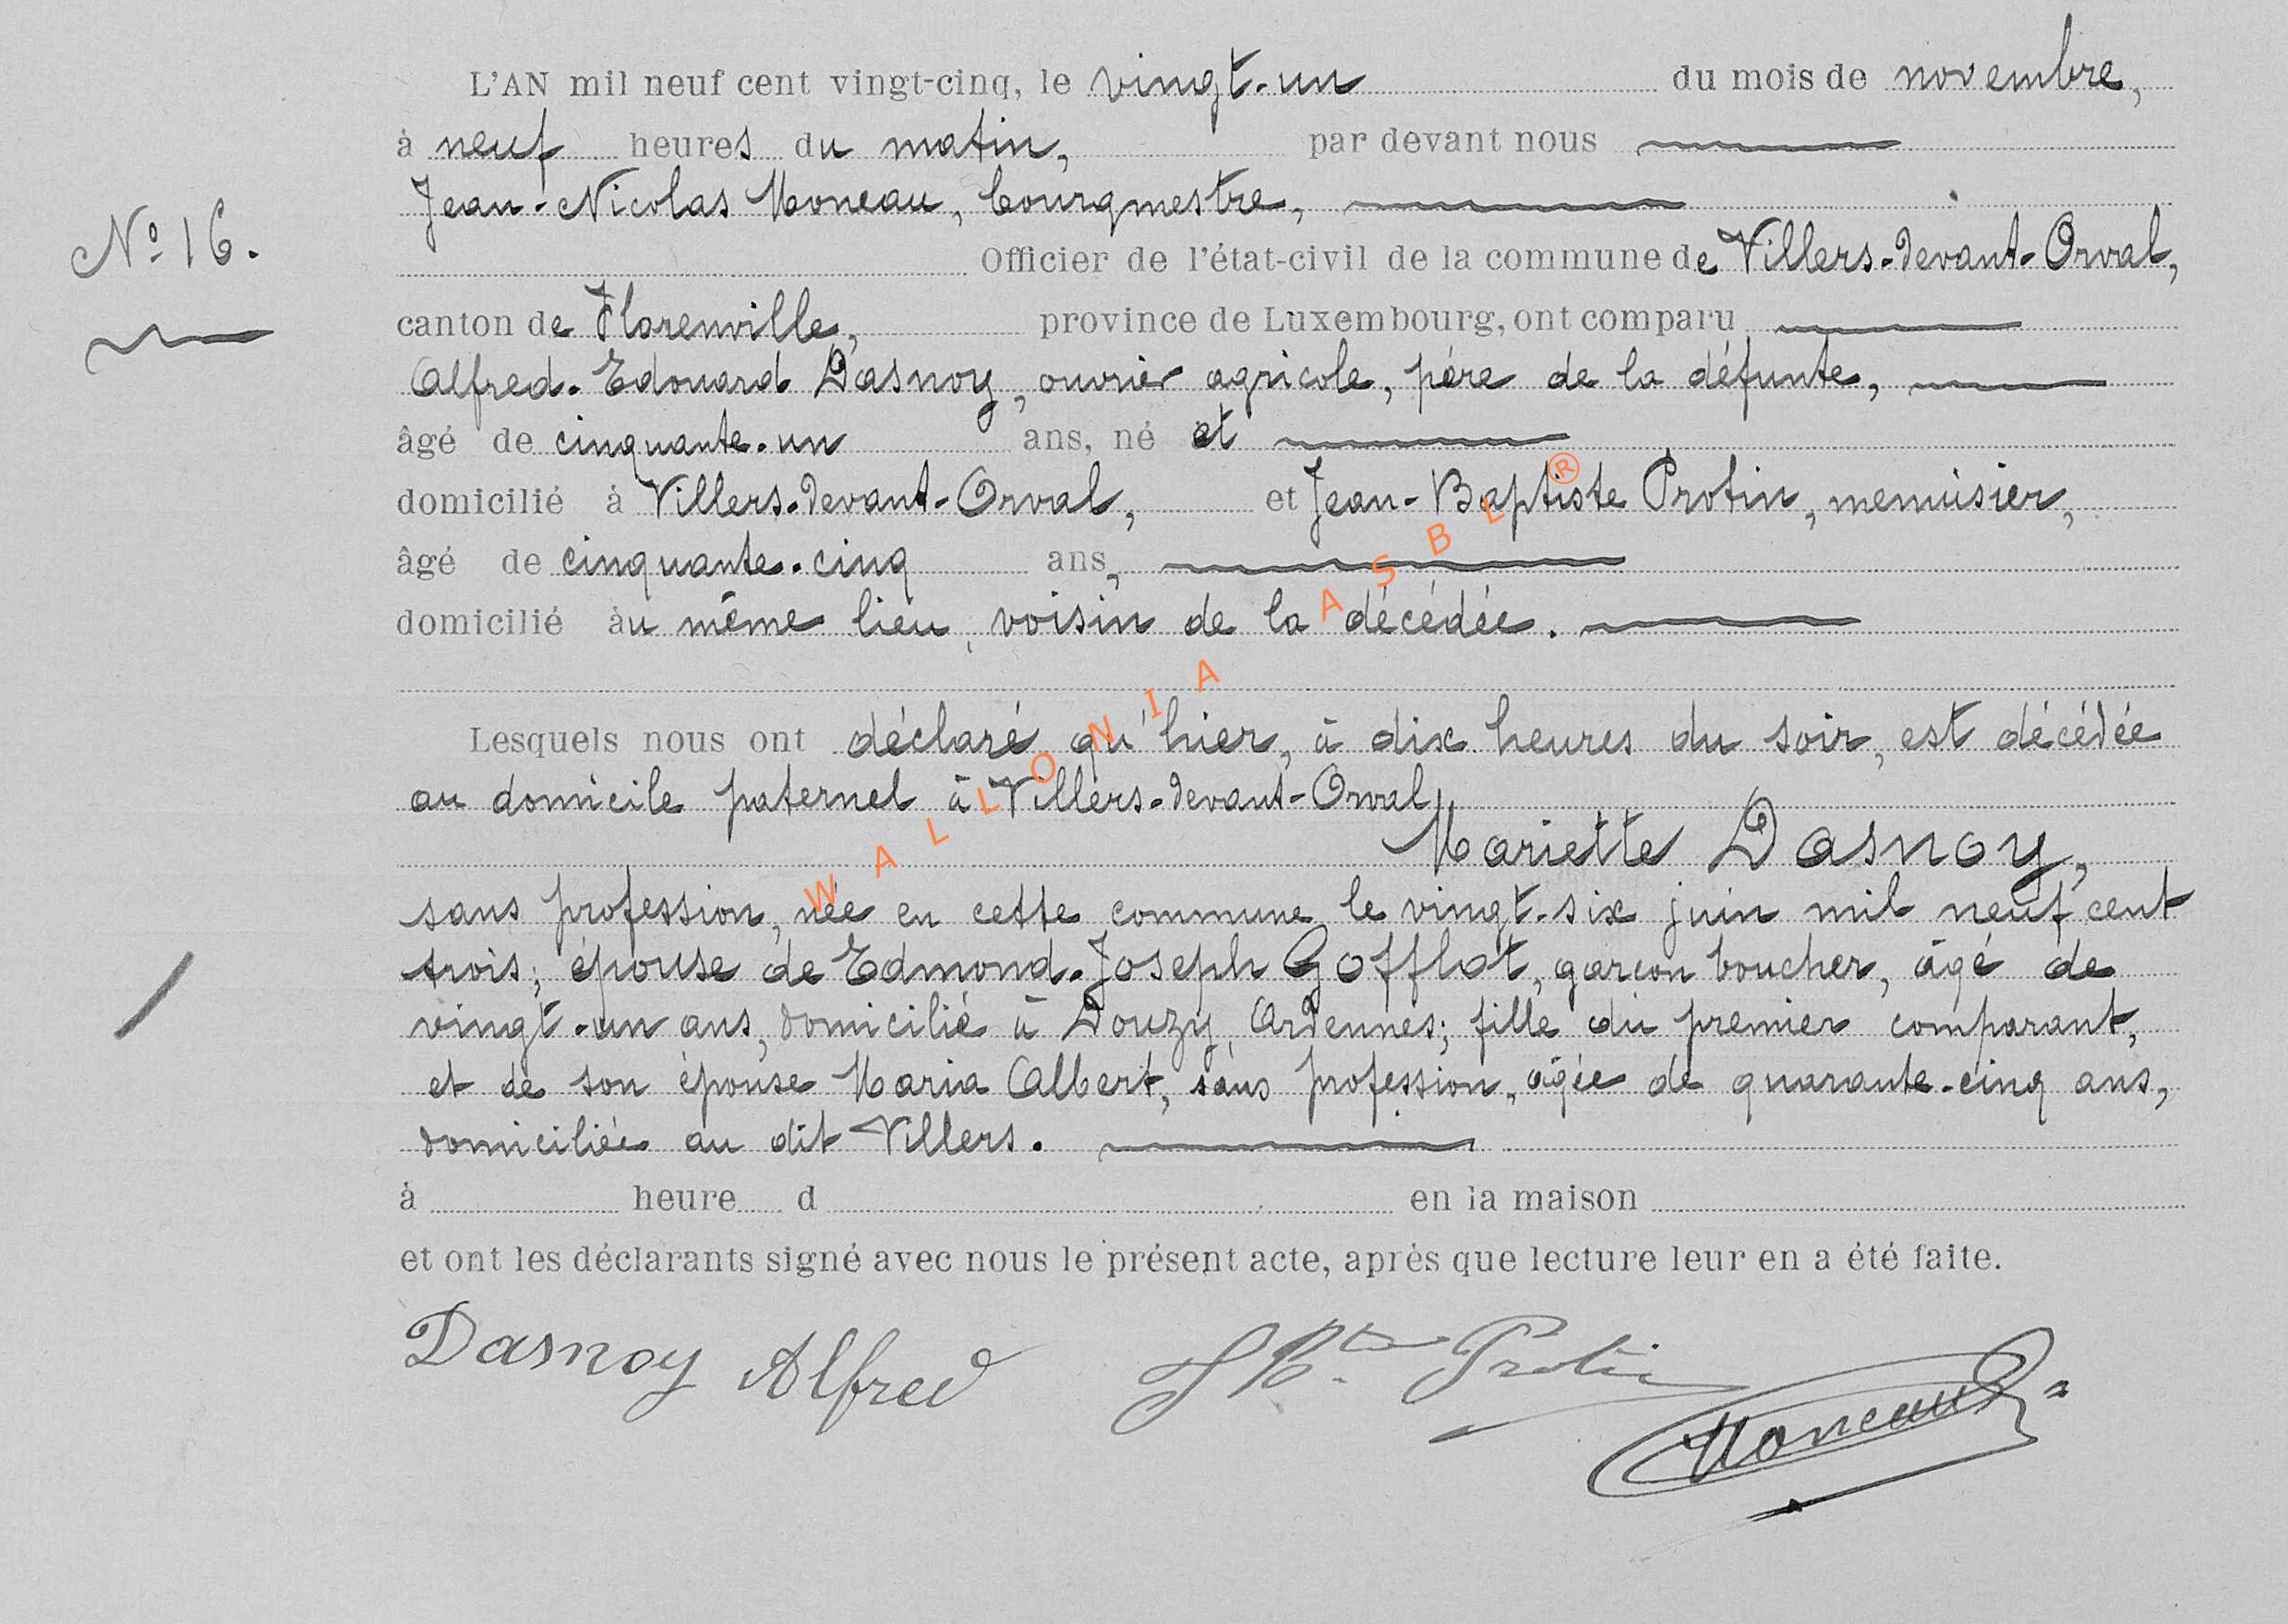 L'AN mil neuf cent vingt-cinq, le vingt-un du mois de novembre,
à neuf heures du matin, par devant nous
Jean-Nicolas Moneau, bourgmestre,
N° 16.
Officier de l'état-civil de la commune de Villers-devant-Orval,
canton de Florenville, province de Luxembourg, ont comparu
Alfred-Edouard Dasnoy, ouvrier agricole, père de la défunte,
âgé de cinquante-un ans, né et
domicilié à Villers-devant-Orval, et Jean-Baptiste Protin, menuisier,
âgé de cinquante-cinq ans,
domicilié au même lieu, voisin de la décédée.
Lesquels nous ont déclaré qu'hier, à dix heures du soir, est décédée
au domicile paternel à Villers-devant-Orval,
Mariette Dasnoy,
sans profession, née en cette commune le vingt-six juin mil neuf cent
trois; épouse de Edmond-Joseph Gofflot, garçon boucher, âgé de
vingt-un ans, domicilié à Douzy, Ardennes; fille du premier comparant,
et de son épouse Maria Albert, sans profession, âgée de quarante-cinq ans,
domiciliée au dit Villers.
à heure d en la maison
et ont les déclarants signé avec nous le présent acte, après que lecture leur en a été faite.
Dasnoy Alfred
J Bte Protin
Moneau
WALLONIA ASBL ®